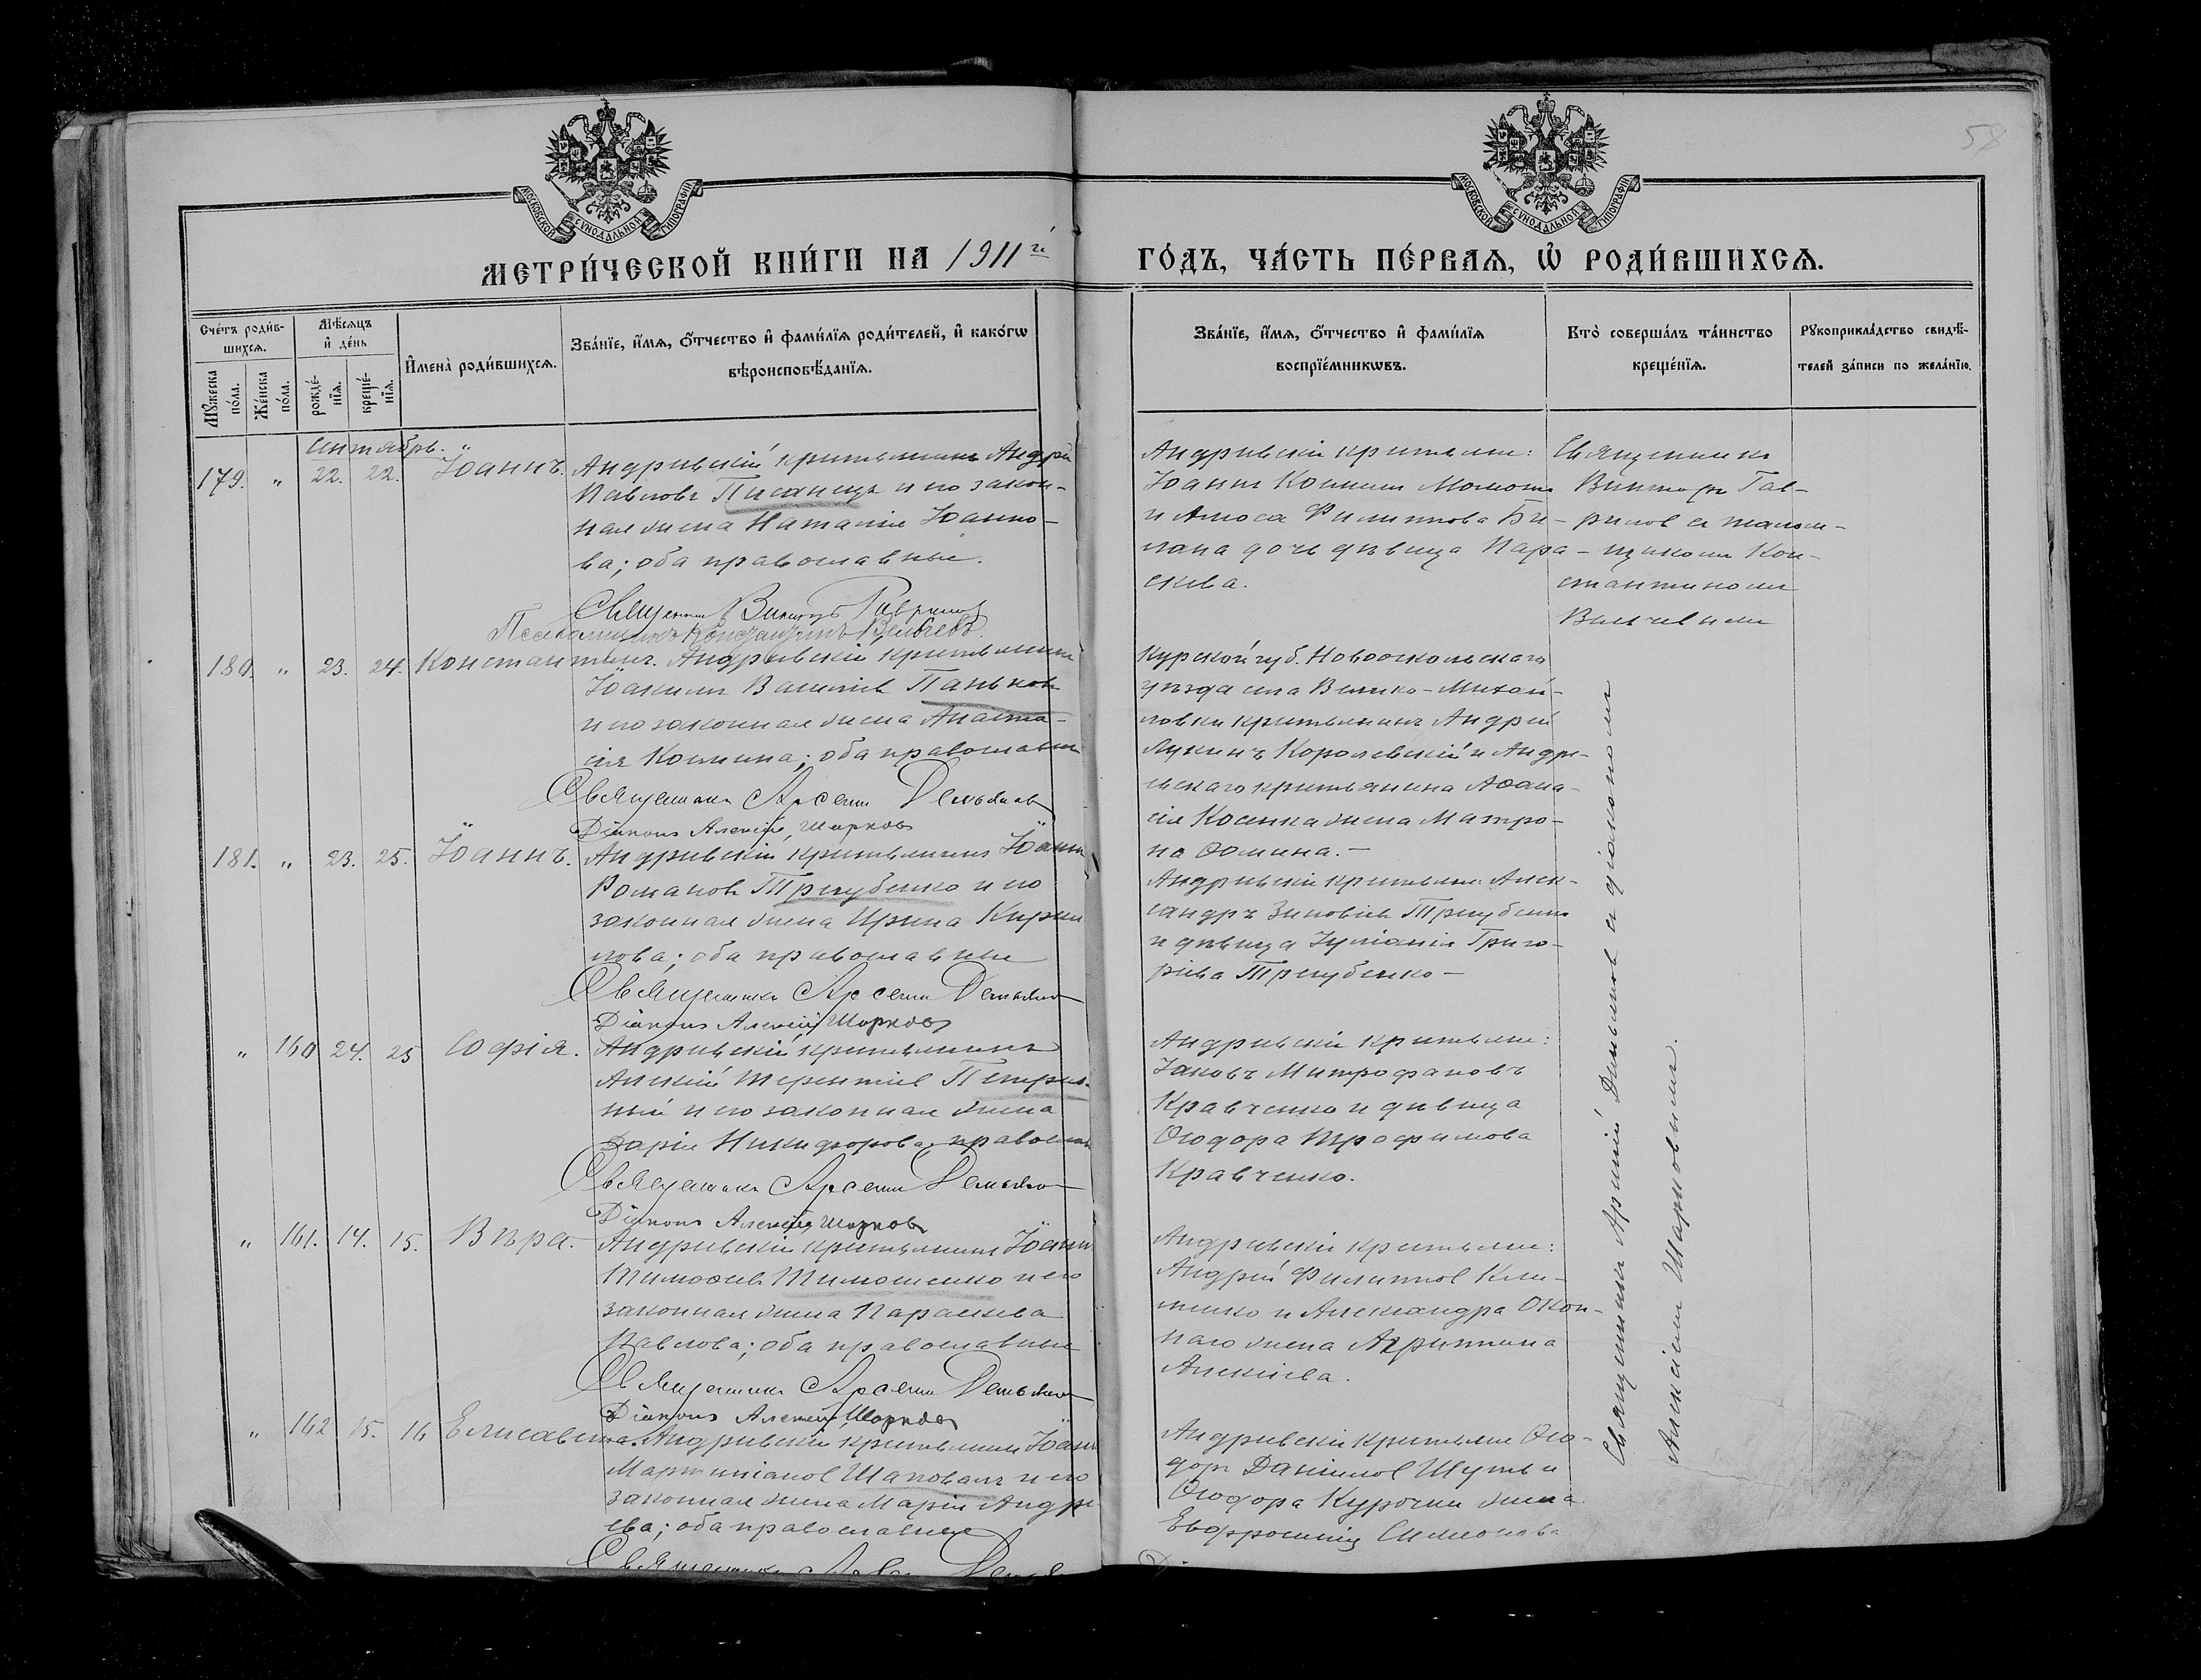 58
МОСКОВСКОЙ СѴНОДАЛЬНОЙ ТИПОГРАФІИ
МОСКОВСКОЙ СѴНОДАЛЬНОЙ ТИПОГРАФІИ
МЕТРИ́ЧЕСКОЙ КНИ́ГИ НА 1911й
ГО́ДЪ, ЧА́СТЬ ПЕ́РВАѦ, Ѡ҆ РОДИ́ВШИХСѦ.
Сче́тъ роди́в-
шихсѧ.
Мꙋ́жеска по́ла.
Же́нска по́ла.
Мѣ́сѧцъ
и҆ де́нь
рожде́-
нїѧ.
креще́-
нїѧ.
И҆мена̀ роди́вшихсѧ.
Зва́нїе, и҆́мѧ, ѻ҆́тчество и҆ фами́лїѧ роди́телей, и҆ како́гѡ
вѣроисповѣ́данїѧ.
Зва́нїе, и҆́мѧ, ѻ҆́тчество и҆ фами́лїѧ
воспрїе́мникѡвъ.
Кто̀ соверша́лъ та́инство
креще́нїѧ.
Рꙋкоприкла́дство свидѣ́-
телей за́писи по жела́нїю.
Сентябрь.
179. " 22. 22. Іоаннъ.
Андреевскій крестьянинъ Андрей
Павловъ Писанецъ и его закон-
ная жена Наталія Іоанно-
ва; оба православные.
Священникъ Викторъ Гаврилов
Псаломщикъ Константинъ Величевъ.
Андреевскіе крестьяне:
Іоаннъ
и Амоса Филиппова Би-
лана дочь девица Пара-
скева.
Священникъ
Викторъ Гав-
рилов съ псалом-
щикомъ Кон-
стантиномъ
180. " 23. 24. Константинъ.
Андреевскій крестьянинъ
Іоакимъ Васильев Паньков
и его законная жена Анаста-
сія Космина; оба православн
Священникъ Арсеній Демьянов
Діаконъ Алексій Шарков
Курской губ. Новооскольскаго
уезда села Велико-Михай-
ловки крестьянинъ Андрей
Лукинъ Королевскій и Андре-
евскаго крестьянина Аѳана-
сія Косенка жена Матро-
на Ѳомина.-
181. " 23. 25. Іоаннъ.
Андреевскій крестьянинъ Іоанн
Романов Трегубенко и его
законная жена Ирина Кирил
лова; оба православные
Священникъ Арсеній Демьянов
Діаконъ Алексій Шарков
Андреевскіе крестьяне: Алек-
сандръ Зиновіев Трегубенко
и девица Іуліанія Григо-
ріева Трегубенко-
" 160 24. 25 Софія.
Андреевскій крестьянинъ
Алексій Терентіев
ный и его законная жена
Дарія Никифорова; православн
Священникъ Арсеній Демьянов
Діаконъ Алексій Шарков
Андреевскіе крестьяне:
Іаковъ Митрофановъ
Кравченко и девица
Ѳеодора Трофимова
Кравченко.
" 161. 14. 15. Вѣра.
Андреевскій крестьянинъ Іоанн
Тимоѳеев Тимошенко и его
законная жена Параскева
Павлова; оба православные
Священникъ Арсеній Демьянов
Діаконъ Алексій Шарков
Андреевскіе крестьяне:
Андрей Филиппов Кли-
менко и Александра Окон-
наго жена Агриппина
Алексіева.
" 162 15. 16 Елисавета.
Андреевскій крестьянинъ Іоанн
Мартиніанов Шаповалъ и его
законная жена Марія Андре
ева; оба православные
Священникъ Арсеній Демьянов
Андреевскіе крестьяне Ѳео-
доръ Даніилов Шуть и
Ѳеодора Курочки жена
Евфросинія Симеонова
Священникъ Арсеній Демьянов съ діакономъ
Алексіемъ